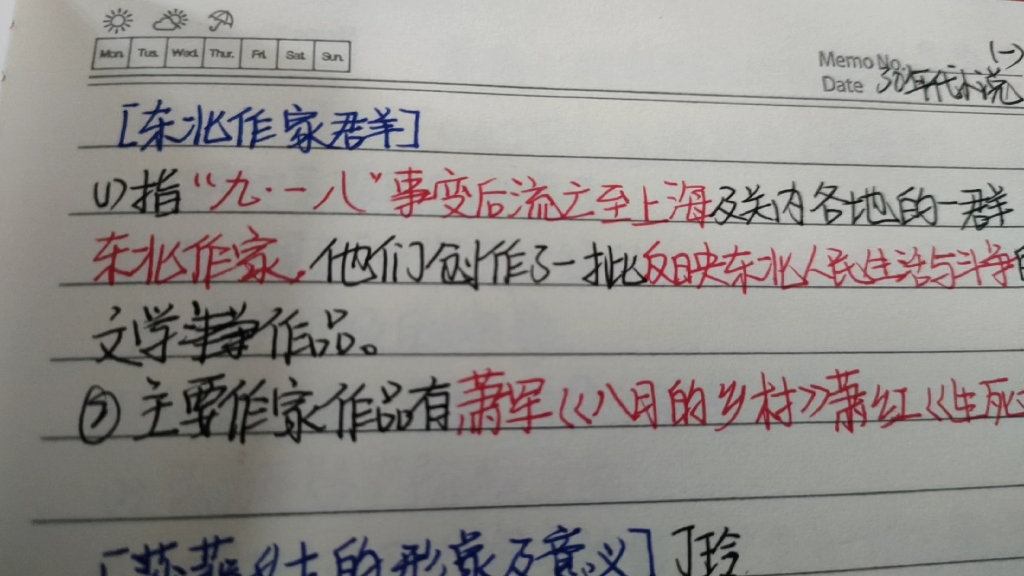 Mon. Tue. Wed. Thur. Fri. Sat. Sun.
Memo No. (一)
Date 30年代小说
[东北作家群]
(1)指“九·一八”事变后流亡至上海及关内各地的一群
东北作家,他们创作了一批反映东北人民生活与斗争的
文学作品。
② 主要作家作品有萧军《八月的乡村》萧红《生死
[莎菲女士的形象及意义] 丁玲